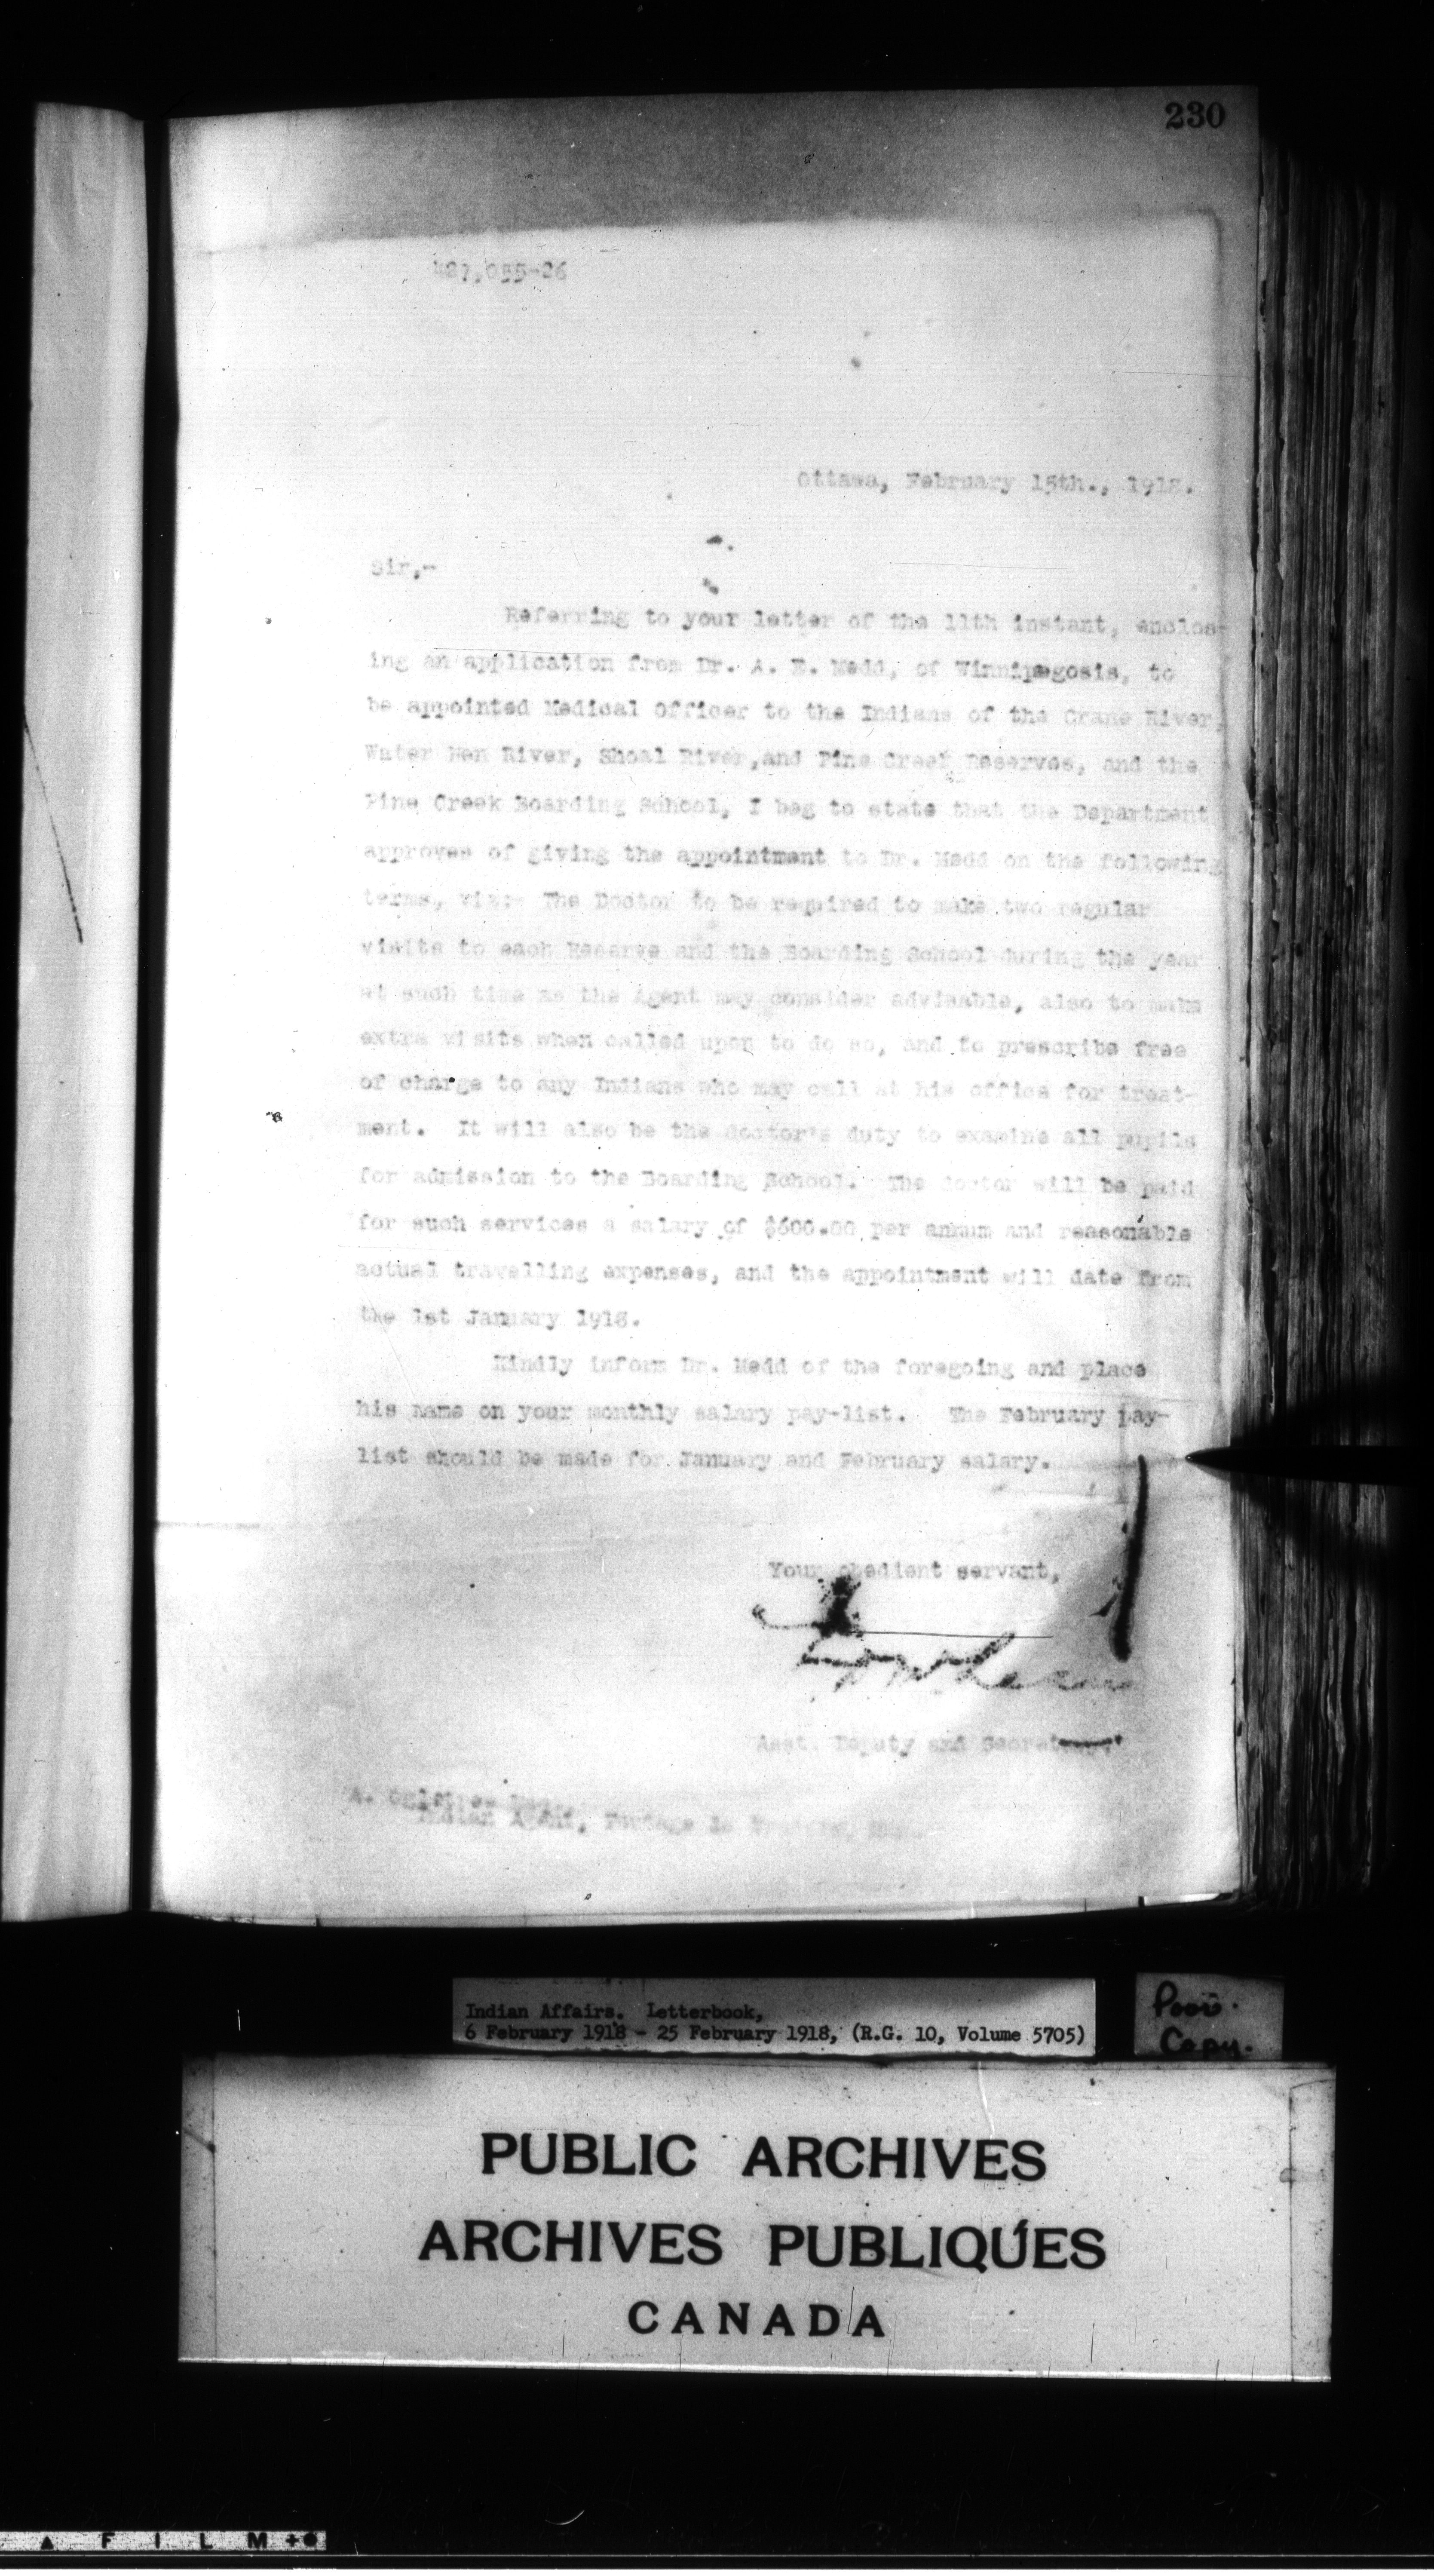 230
427,055-26
Ottawa, February 15th., 1918.
Sir,-
Referring to your letter of the 11th instant, enclos-
ing an application from Dr. A. E. Medd, of Winnipegosis, to
be appointed Medical Officer to the Indians of the Crane River,
Water Hen River, Shoal River,and Pine Creek Reserves, and the
Pine Creek Boarding School, I beg to state that the Department
approves of giving the appointment to Dr. Medd on the following
terms, viz:- The Doctor to be required to make two regular
visits to each Reserve and the Boarding School during the year
at such time as the Agent may consider advisable, also to make
extra visits when called upon to do so, and to prescribe free
of charge to any Indians who may call at his office for treat-
ment. It will also be the doctor's duty to examine all pupils
for admission to the Boarding School. The doctor will be paid
for such services a salary of $600.00 per annum and reasonable
actual travelling expenses, and the appointment will date from
the 1st January 1918.
Kindly inform Dr. Medd of the foregoing and place
his name on your monthly salary pay-list. The February pay-
list should be made for January and February salary.
Your obedient servant,
Asst. Deputy and Secretary.
A. Ogletree Esq.,
Indian Agent, Portage la Prairie, Man.
Indian Affairs. Letterbook,
6 February 1918 - 25 February 1918, (R.G. 10, Volume 5705)
Poor
Copy.
PUBLIC ARCHIVES
ARCHIVES PUBLIQUES
CANADA
A F I L M